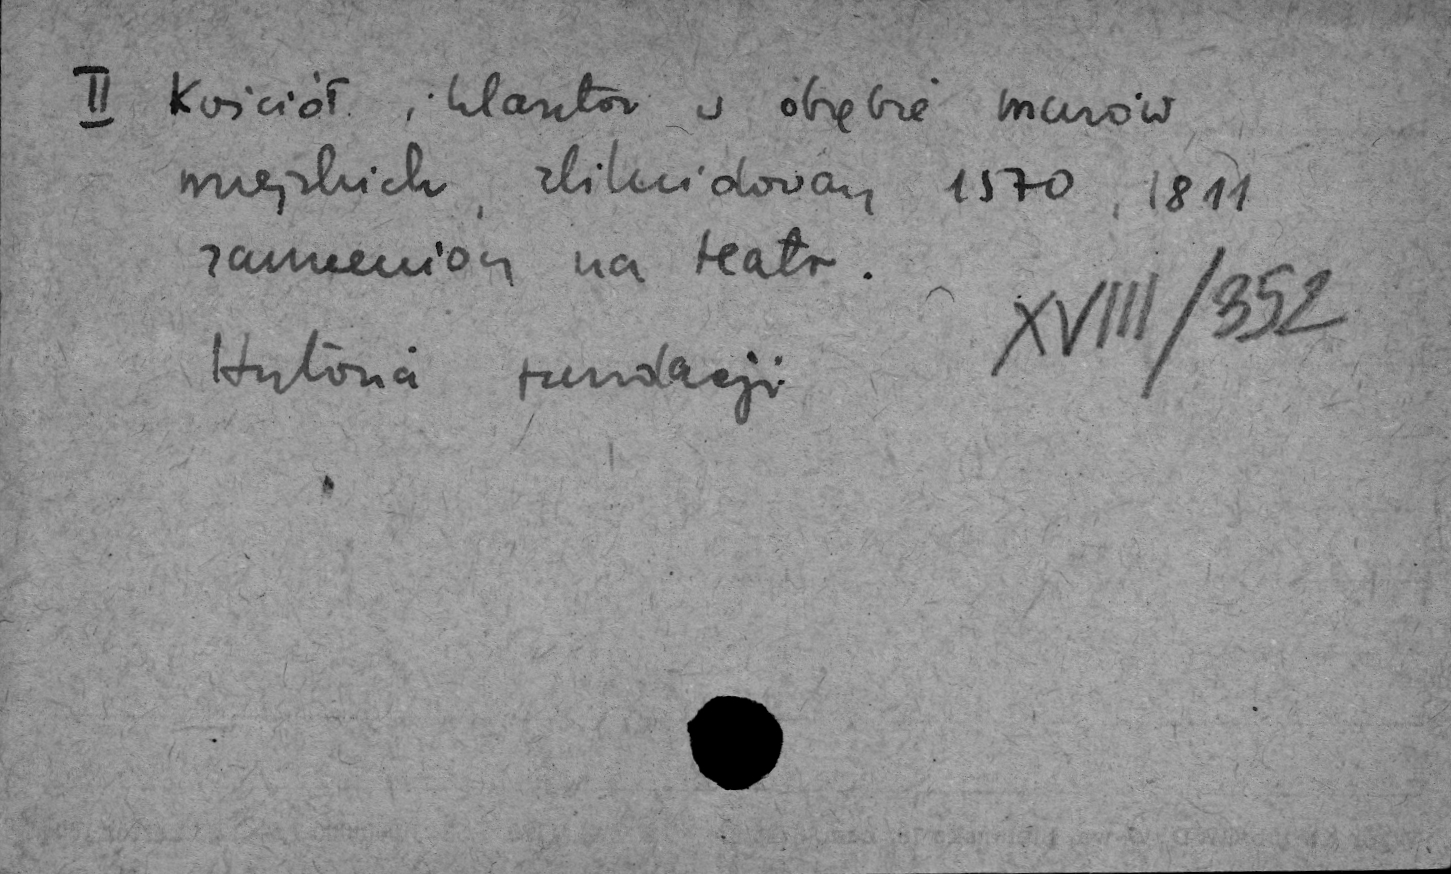 II Kościół i klasztor w obrębie murów
miejskich, zlikwidowany 1570, 1811
zamieniony na teatr.
XVIII/352
Historia fundacji